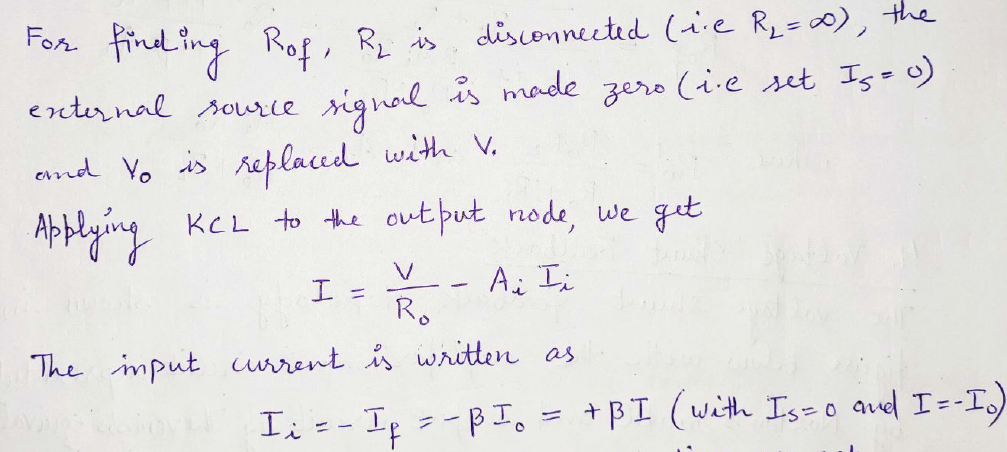 For finding Rof, RL is disconnected (i.e RL = ∞), the
external source signal is made zero (i.e set Is = 0)
and Vo is replaced with V.
Applying KCL to the output node, we get
I = V/Ro - Ai Ii
The input current is written as
Ii = - If = - βIo = + βI (with Is = 0 and I = - Io)